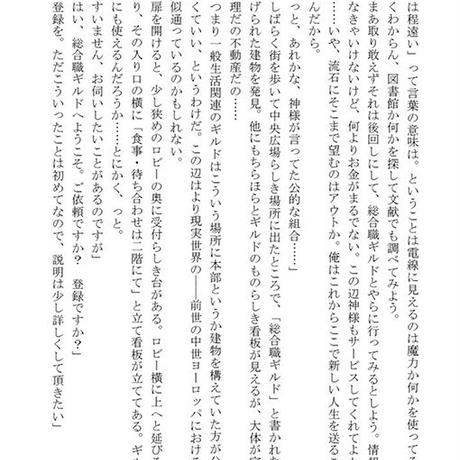 は程遠い」って言葉の意味は。ということは電線に見えるのは魔力か何かを使ってる
くわからん、図書館か何かを探して文献でも調べてみよう。
まあ取り敢えずそれは後回しにして、総合職ギルドとやらに行ってみるとしよう。情報
なきゃいけないけど、何よりお金がまるでない。この辺神様もサービスしてくれてよ
……いや、流石にそこまで望むのはアウトか。俺はこれからここで新しい人生を送るこ
んだから。
っと、あれかな、神様が言ってた公的な組合……」
しばらく街を歩いて中央広場らしき場所に出たところで、「総合職ギルド」と書かれた
げられた建物を発見。他にもちらほらとギルドのものらしき看板が見えるが、大体が
理だの不動産だの……
つまり一般生活関連のギルドはこういう場所に本部というか建物を構えていた方が
くていい、というわけだ。この辺はより現実世界の――前世の中世ヨーロッパにおける
似通っているのかもしれない。
扉を開けると、少し狭めのロビーの奥に受付らしき台がある。ロビー横に上へと延びる
り、その入り口の横に「食事・待ち合わせは二階にて」と立て看板が立ててある。ギ
にも使えるんだろうか……とにかく、っと。
すいません、お伺いしたいことがあるのですが」
はい、総合職ギルドへようこそ。ご依頼ですか？　登録ですか？」
登録を。ただこういったことは初めてなので、説明は少し詳しくして頂きたい」